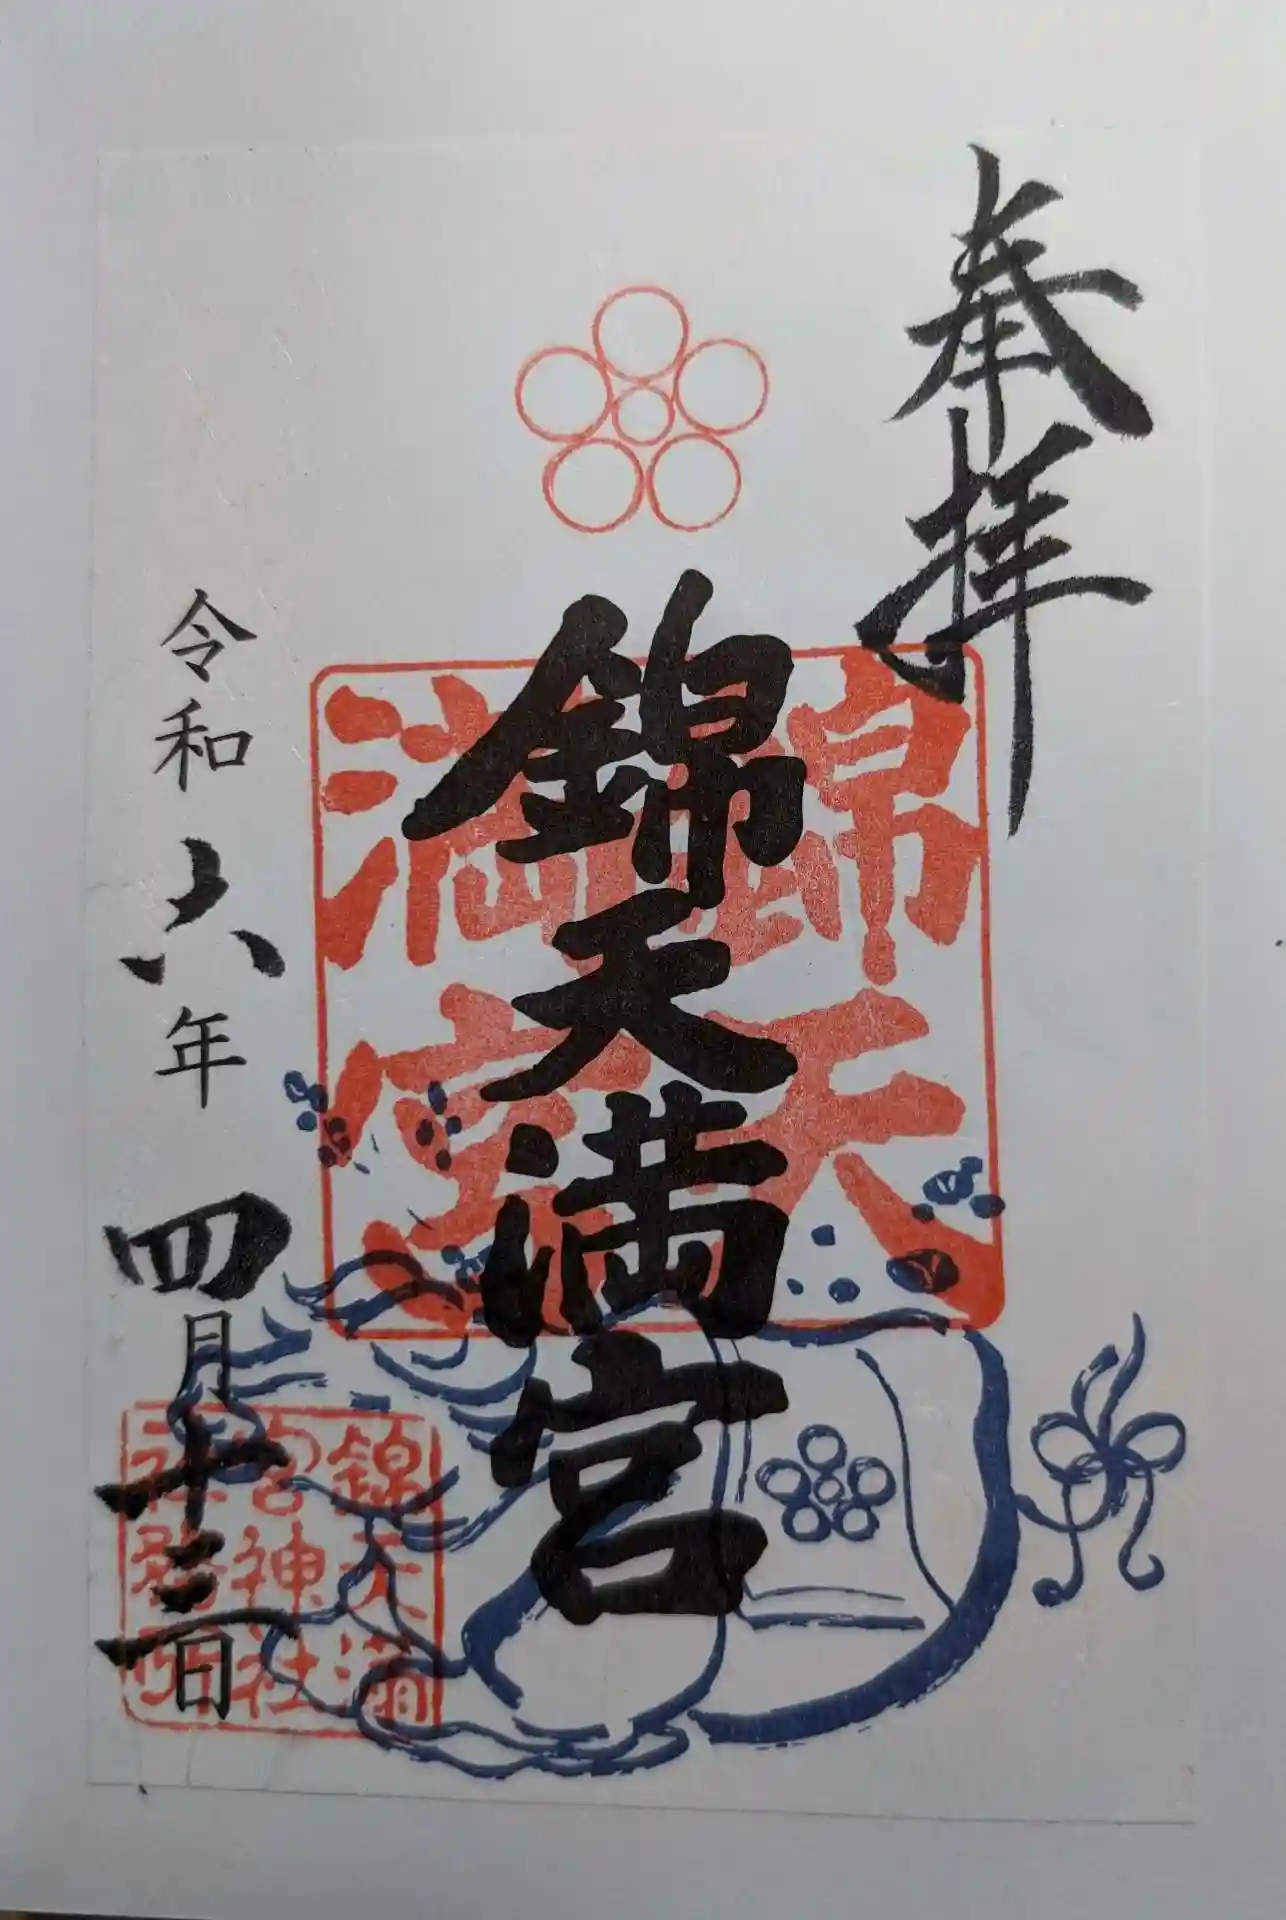 奉拝
錦天満宮
錦天
満宮
令和六年四月十三日
錦天満
宮神社
社務所